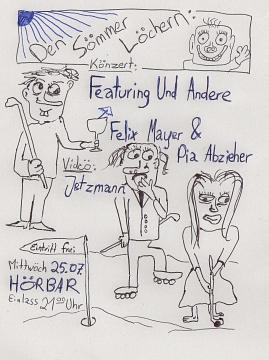 Den Sömmer Löchern:
Könzert:
Featuring Und Andere
Felix Mayer &
Pia Abzieher
Videö:
Jetzmann
Eintritt frei
Mittwöch 25.07.
HÖRBAR
Einlass 21⁰⁰ Uhr